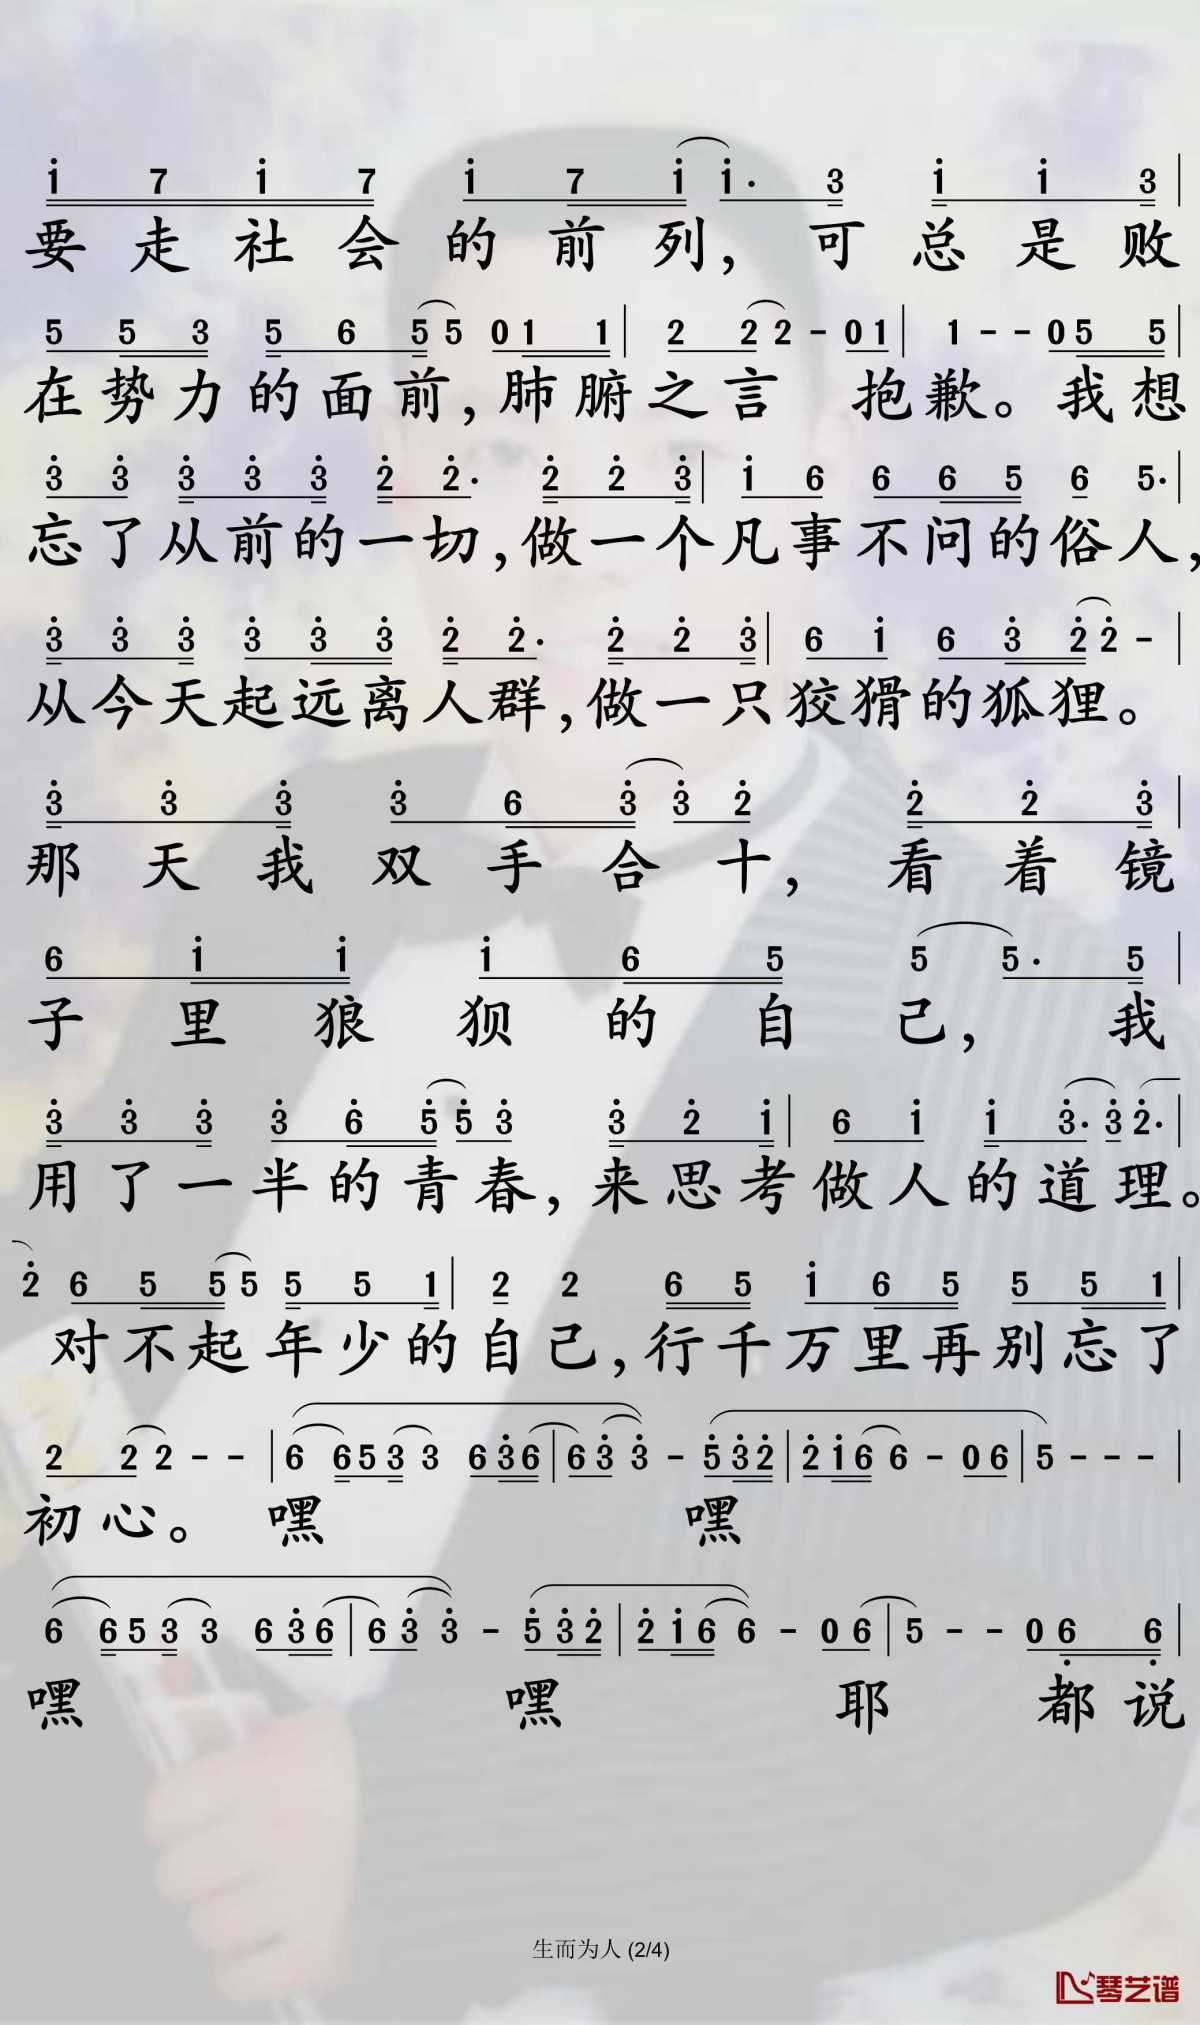 1 7 1 7 1 7 1 1· 3 1 1 3
要走社会的前列，可总是败
5 5 3 5 6 5 5 0 1 1 2 2 2 - 0 1 1 - - 0 5 5
在势力的面前，肺腑之言 抱歉。我想
3 3 3 3 3 2 2· 2 2 3 1 6 6 6 5 6 5·
忘了从前的一切，做一个凡事不问的俗人，
3 3 3 3 3 3 2 2· 2 2 3 6 1 6 3 2 2 -
从今天起远离人群，做一只狡猾的狐狸。
3 3 3 3 6 3 3 2 2 2 3
那天我双手合十，看着镜
6 1 1 1 6 5 5 5· 5
子里狼狈的自己，我
3 3 3 3 6 5 5 3 3 2 1 6 1 1 3· 3 2·
用了一半的青春，来思考做人的道理。
2 6 5 5 5 5 5 1 2 2 6 5 1 6 5 5 5 1
对不起年少的自己，行千万里再别忘了
2 2 2 - - 6 6 5 3 3 6 3 6 6 3 3 - 5 3 2 2 1 6 6 - 0 6 5 - - -
初心。嘿 嘿
6 6 5 3 3 6 3 6 6 3 3 - 5 3 2 2 1 6 6 - 0 6 5 - - 0 6 6
嘿 嘿 耶 都说
生而为人 (2/4)
琴艺谱